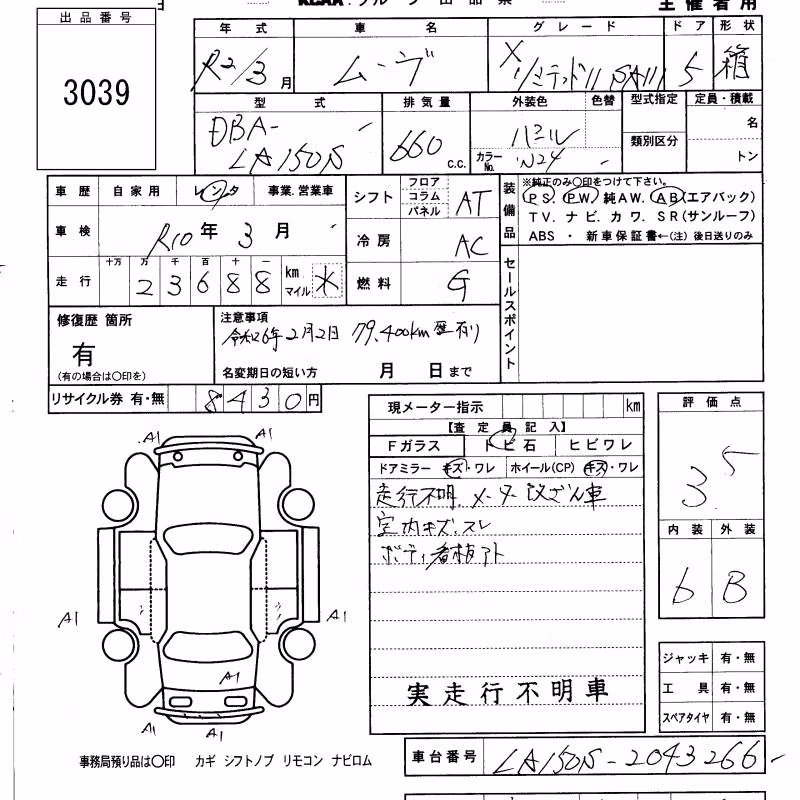 主催者用
出品番号
3039
年式 車名 グレード ドア 形状
R2/3月 ムーヴ X リミテッドII SAIII 5 箱
型式 排気量 外装色 色替 型式指定 定員・積載
DBA-LA150S 660 c.c. パール カラーNo. W24 類別区分 名 トン
車歴 自家用 レンタ 事業.営業車
車検 R10年3月
走行 十万 万 千 百 十 一
23688 km マイル
シフト フロア コラム パネル AT
冷房 AC
燃料 G
装備品 ※純正のみ〇印をつけて下さい。
PS. PW. 純AW. AB(エアバック)
TV. ナビ. カワ. SR(サンルーフ)
ABS ・ 新車保証書←(注) 後日送りのみ
セールスポイント
修復歴 箇所
有
(有の場合は〇印を)
注意事項
令和6年2月2日 79,400km 歴有り
名変期日の短い方 月 日まで
リサイクル券 有・無 8430円
現メーター指示 km
【査定員記入】
Fガラス トビ石 ヒビワレ
ドアミラー キズ・ワレ ホイール(CP) キズ・ワレ
走行不明 メーター改ざん車
室内キズ.スレ
ボディ看板アト
実走行不明車
評価点
3.5
内装 外装
b B
ジャッキ 有・無
工具 有・無
スペアタイヤ 有・無
A1 A1
A1 A1
A1
A1 A1
事務局預り品は〇印 カギ シフトノブ リモコン ナビロム
車台番号 LA150S-2043266